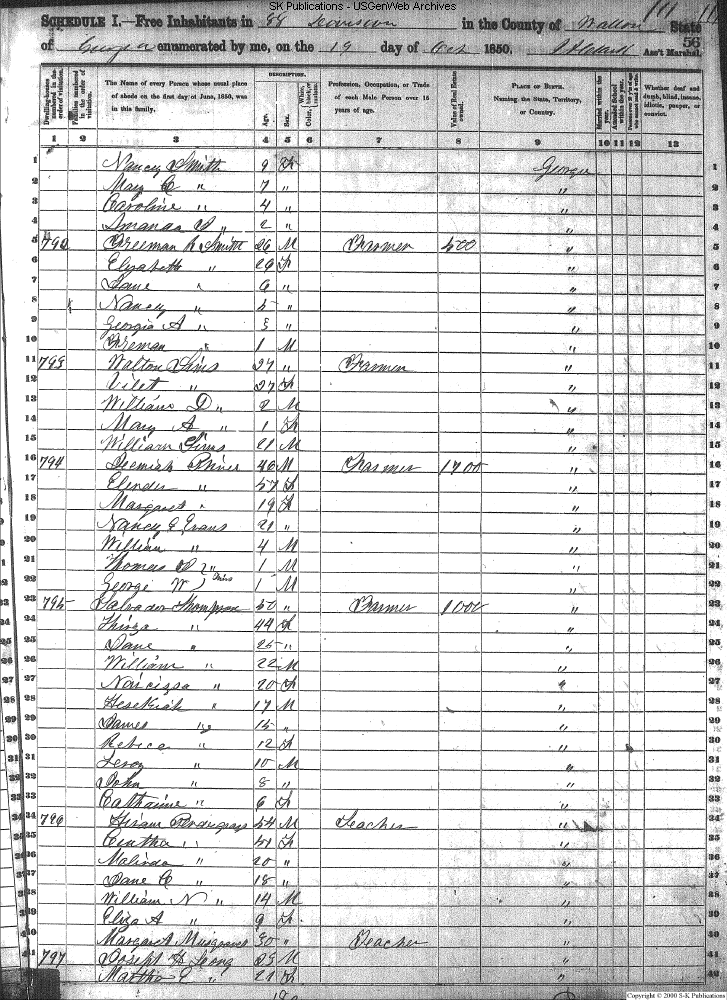 SK Publications - USGenWeb Archives
SCHEDULE I.—Free Inhabitants in 88 Division in the County of Walton State
of Georgia enumerated by me, on the 19 day of Oct 1850. Ass't Marshal. 56
DESCRIPTION.
Dwelling-houses numbered in the order of visitation.
Families numbered in the order of visitation.
The Name of every Person whose usual place of abode on the first day of June, 1850, was in this family.
Age.
Sex.
Color, White, black, or mulatto.
Profession, Occupation, or Trade of each Male Person over 15 years of age.
Value of Real Estate owned.
PLACE OF BIRTH. Naming the State, Territory, or Country.
Married within the year.
Attended School within the year.
Whether deaf and dumb, blind, insane, idiotic, pauper, or convict.
1 2 3 4 5 6 7 8 9 10 11 12 13
1 Nancy Smith 9 F Georgia
2 Mary C " 7 " "
3 Caroline " 4 " "
4 Amanda " 2 " "
5 792 Freeman Smith 26 M Farmer 500 "
6 Elizabeth " 29 F "
7 Jane " 6 " "
8 Nancy " 5 " "
9 Georgia A " 3 " "
10 Freman " 1 M "
11 793 Walton Sims 27 " Farmer "
12 Vilet " 27 F "
13 William D " 2 M "
14 Mary A " 1 F "
15 William Sims 21 M "
16 794 46 M Farmer 1700 "
17 " 57 F "
18 Margaret " 19 F "
19 Nancy E Evans 21 " "
20 William " 4 M "
21 Thomas " 1 M "
22 George W 1 M "
23 795 Thompson 50 " Farmer 1000 "
24 " 44 F "
25 Jane " 25 " "
26 William " 22 M "
27 Narcissa " 20 F "
28 Hesekiah " 17 M "
29 James " 15 " "
30 Rebeca " 12 F "
31 Leroy " 10 M "
32 John " 8 " "
33 Catharine " 6 F "
34 796 Hiram Pendergrass 54 M Teacher "
35 " 51 F "
36 Malinda " 20 " "
37 Jane C " 18 " "
38 William N " 14 M "
39 Eliza A " 9 F "
40 Margaret 30 " Teacher "
41 797 Joseph Long 29 M "
Martha E " 21 F "
Copyright © 2000 S-K Publications